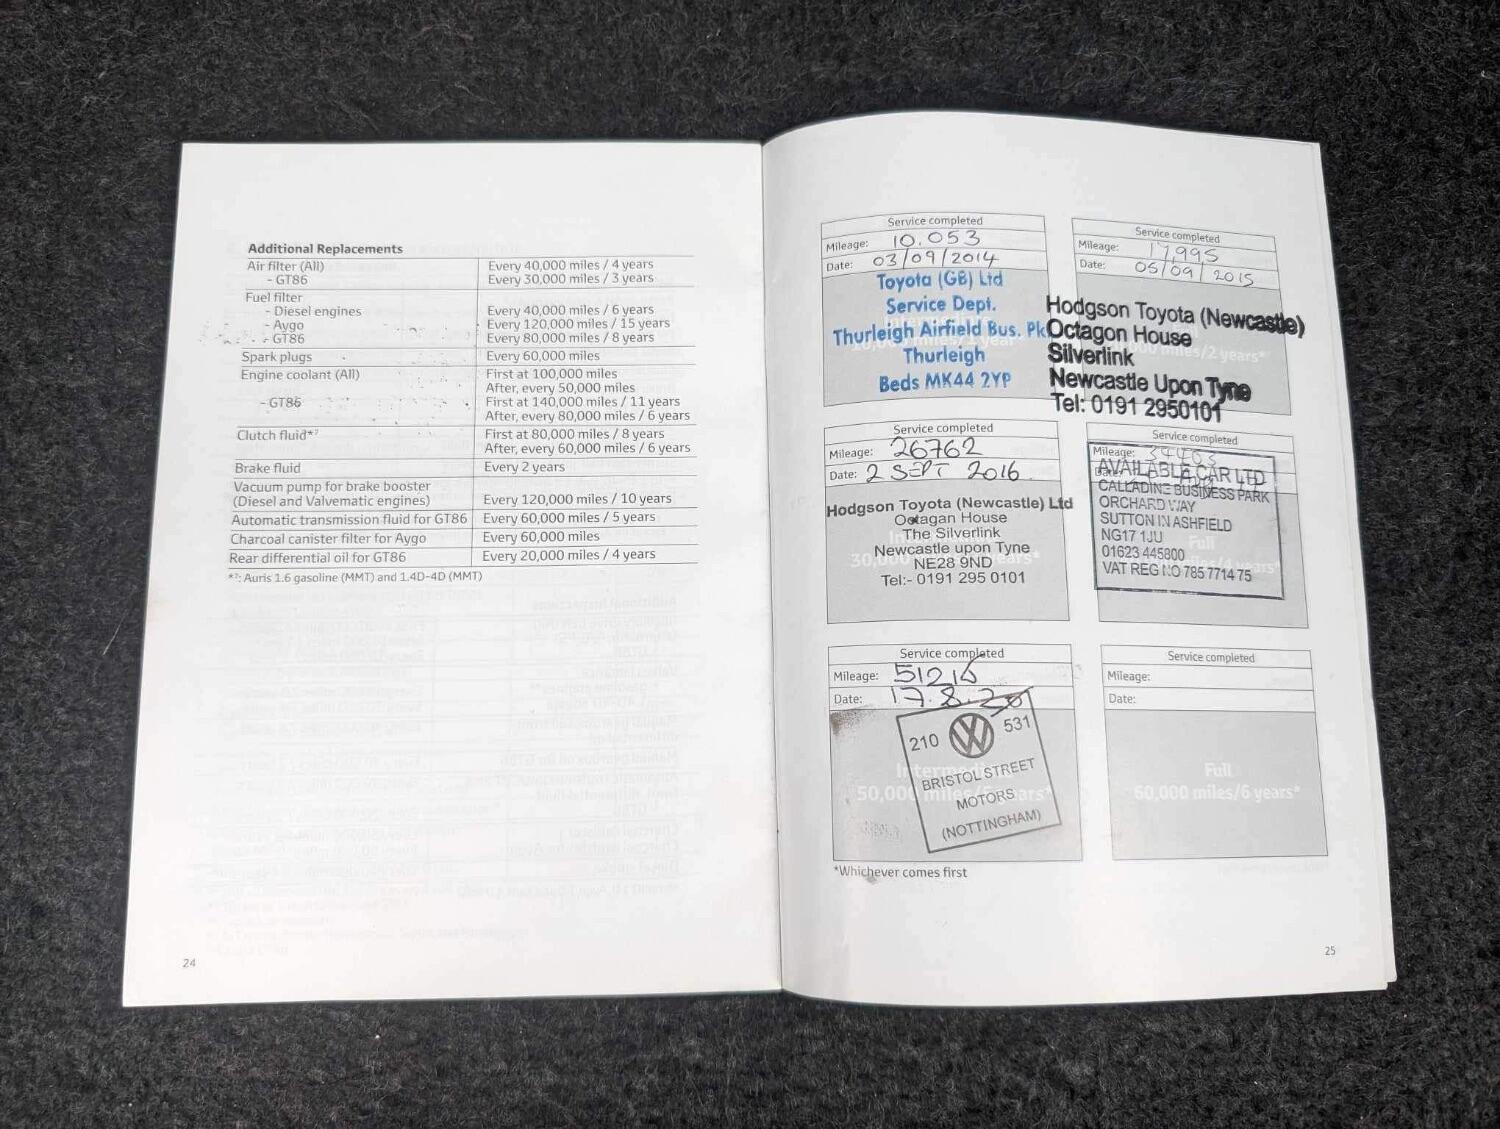 Additional Replacements
Air filter (All) Every 40,000 miles / 4 years
- GT86 Every 30,000 miles / 3 years
Fuel filter
- Diesel engines Every 40,000 miles / 6 years
- Aygo Every 120,000 miles / 15 years
- GT86 Every 80,000 miles / 8 years
Spark plugs Every 60,000 miles
Engine coolant (All) First at 100,000 miles
After, every 50,000 miles
- GT86 First at 140,000 miles / 11 years
After, every 80,000 miles / 6 years
Clutch fluid*7 First at 80,000 miles / 8 years
After, every 60,000 miles / 6 years
Brake fluid Every 2 years
Vacuum pump for brake booster
(Diesel and Valvematic engines) Every 120,000 miles / 10 years
Automatic transmission fluid for GT86 Every 60,000 miles / 5 years
Charcoal canister filter for Aygo Every 60,000 miles
Rear differential oil for GT86 Every 20,000 miles / 4 years
*7: Auris 1.6 gasoline (MMT) and 1.4D-4D (MMT)
24
Service completed
Mileage: 10.053
Date: 03/09/2014
Toyota (GB) Ltd
Service Dept.
Thurleigh Airfield Bus. Pk
Thurleigh
Beds MK44 2YP
Service completed
Mileage: 17,995
Date: 05/09/2015
Hodgson Toyota (Newcastle)
Octagon House
Silverlink
Newcastle Upon Tyne
Tel: 0191 2950101
miles/2 years*
Service completed
Mileage: 26762
Date: 2 SEPT 2016
Hodgson Toyota (Newcastle) Ltd
Octagan House
The Silverlink
Newcastle upon Tyne
NE28 9ND
Tel:- 0191 295 0101
30,000
Service completed
Mileage:
AVAILABLE CAR LTD
CALLADINE BUSINESS PARK
ORCHARD WAY
SUTTON IN ASHFIELD
NG17 1JU
01623 445800
VAT REG NO 785 7714 75
Full
years*
Service completed
Mileage: 51215
Date: 17.8.20
210 VW 531
BRISTOL STREET
MOTORS
(NOTTINGHAM)
50,000 miles
Service completed
Mileage:
Date:
Full
60,000 miles/6 years*
*Whichever comes first
25